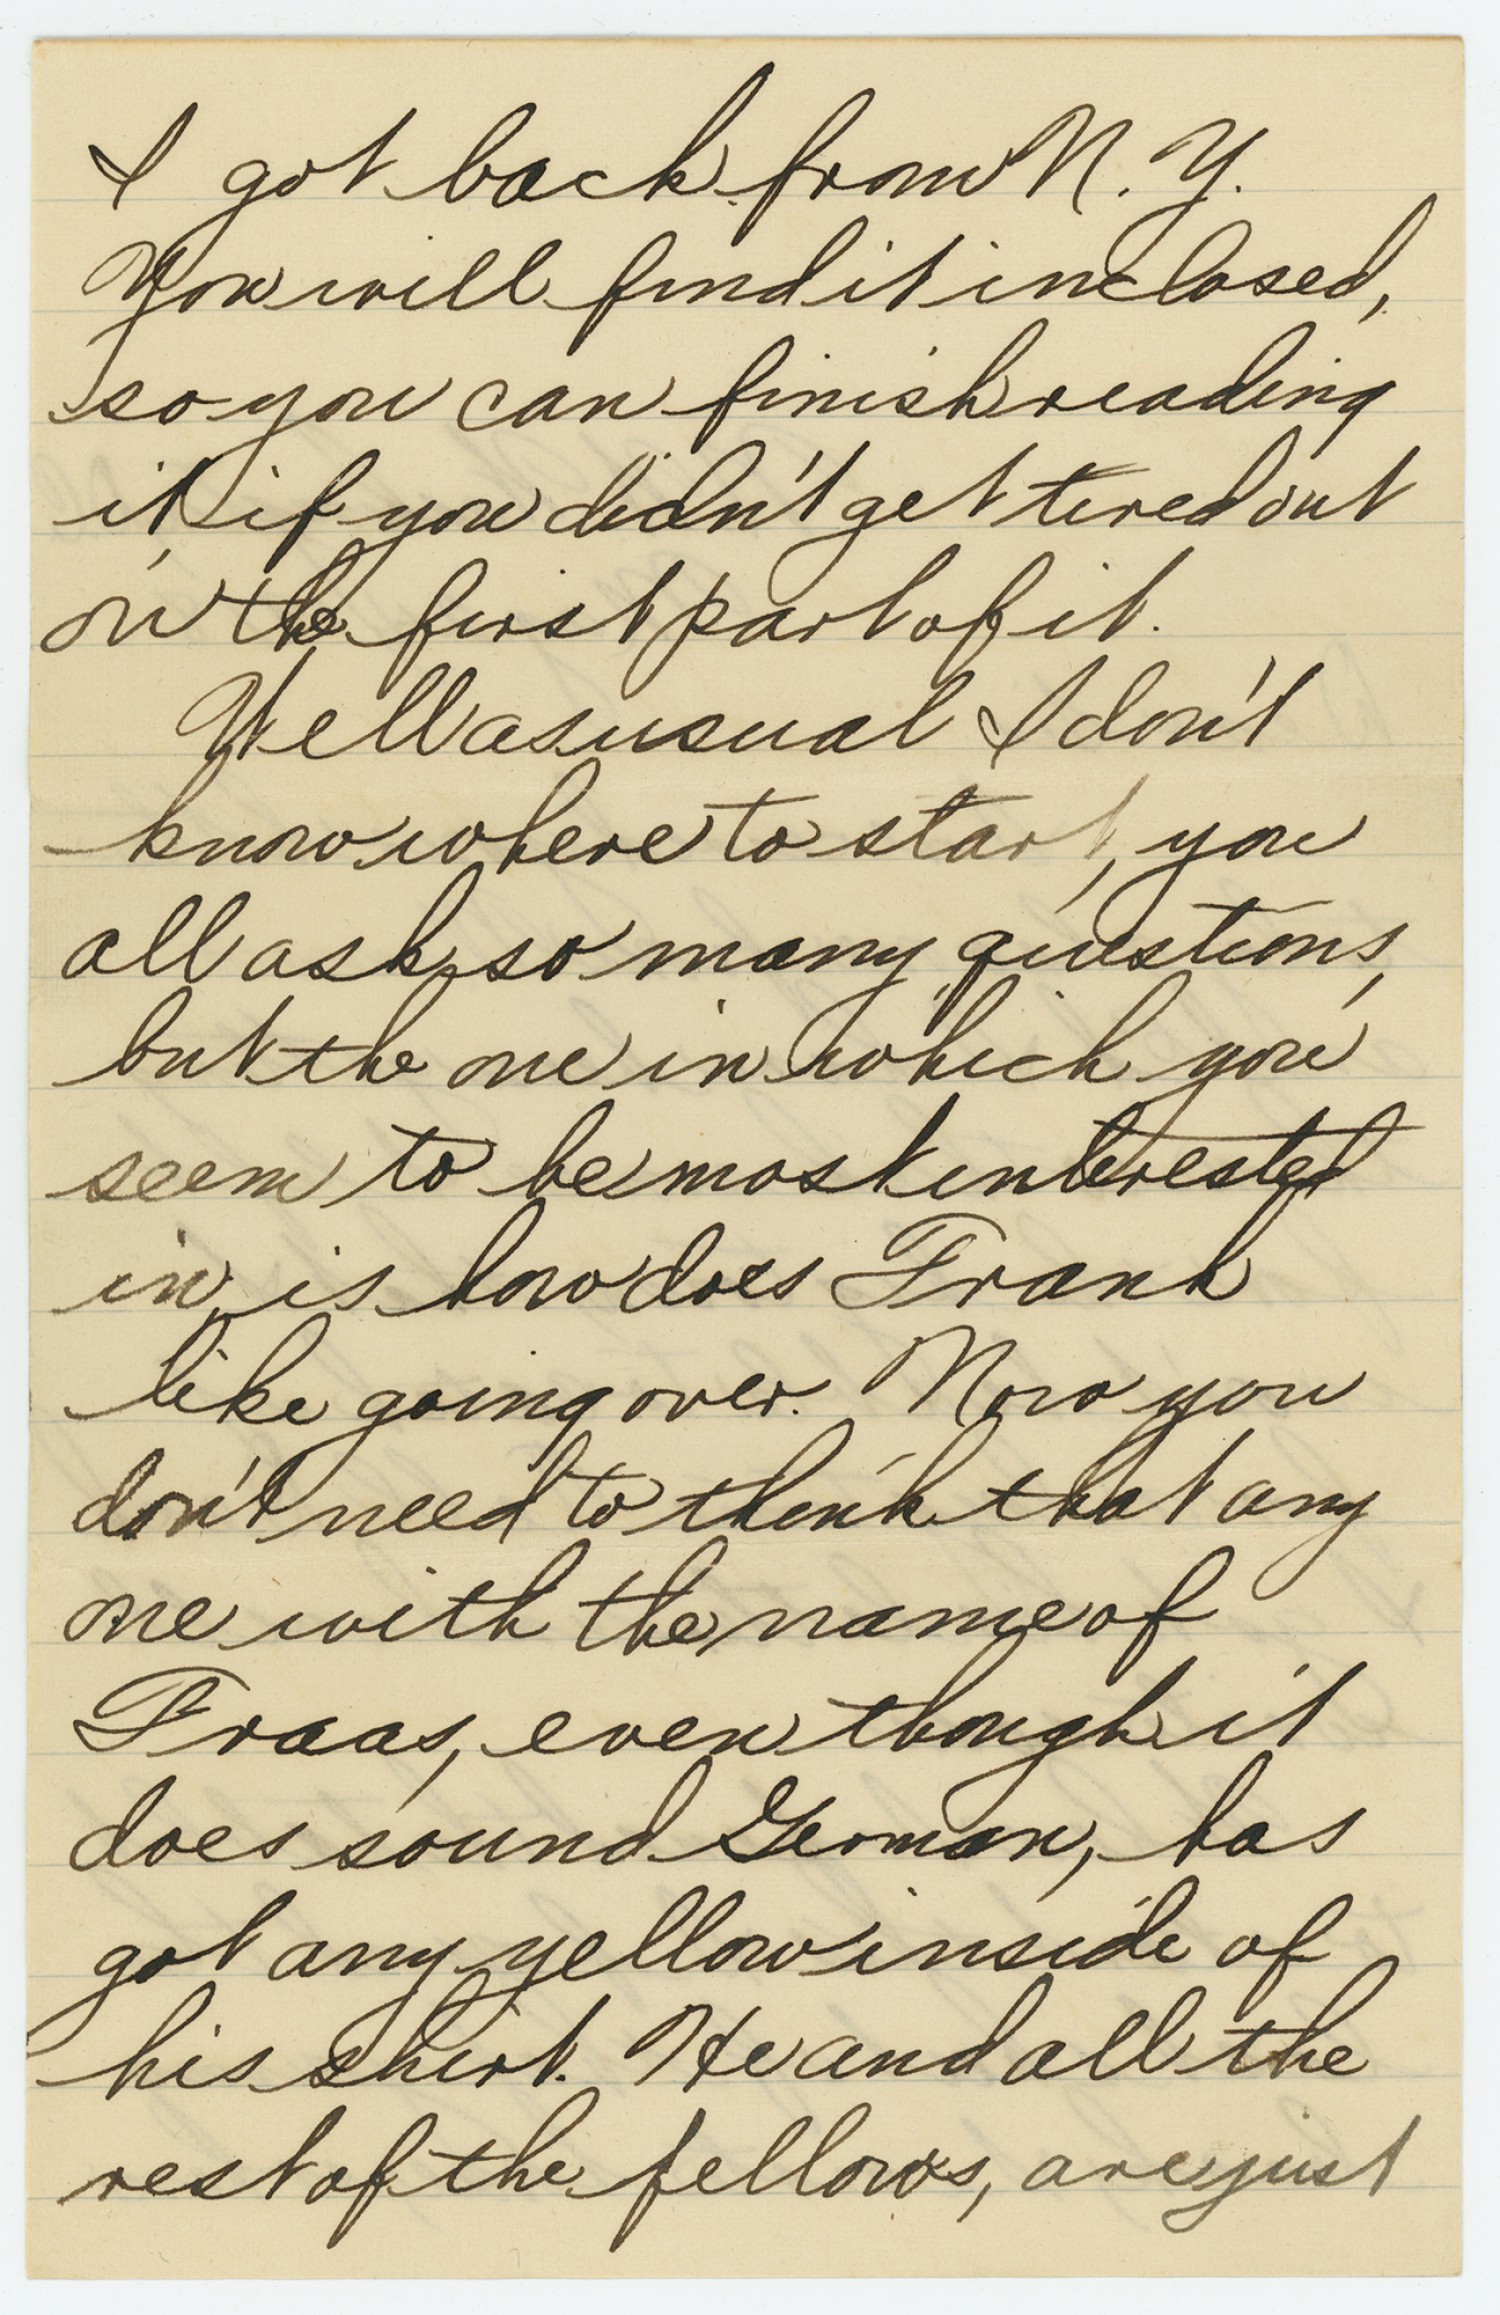 I got back from N. Y.
You will find it inclosed,
so you can finish reading
it, if you didn't get tired out
on the first part of it.
Well as usual I don't
know where to start, you
all ask so many questions,
but the one in which you
seem to be most interested
in, is how does Frank
like going over. Now you
don't need to think that any
one with the name of
Fraas, even though it
does sound German, has
got any yellow inside of
his shirt. He and all the
rest of the fellows, are just